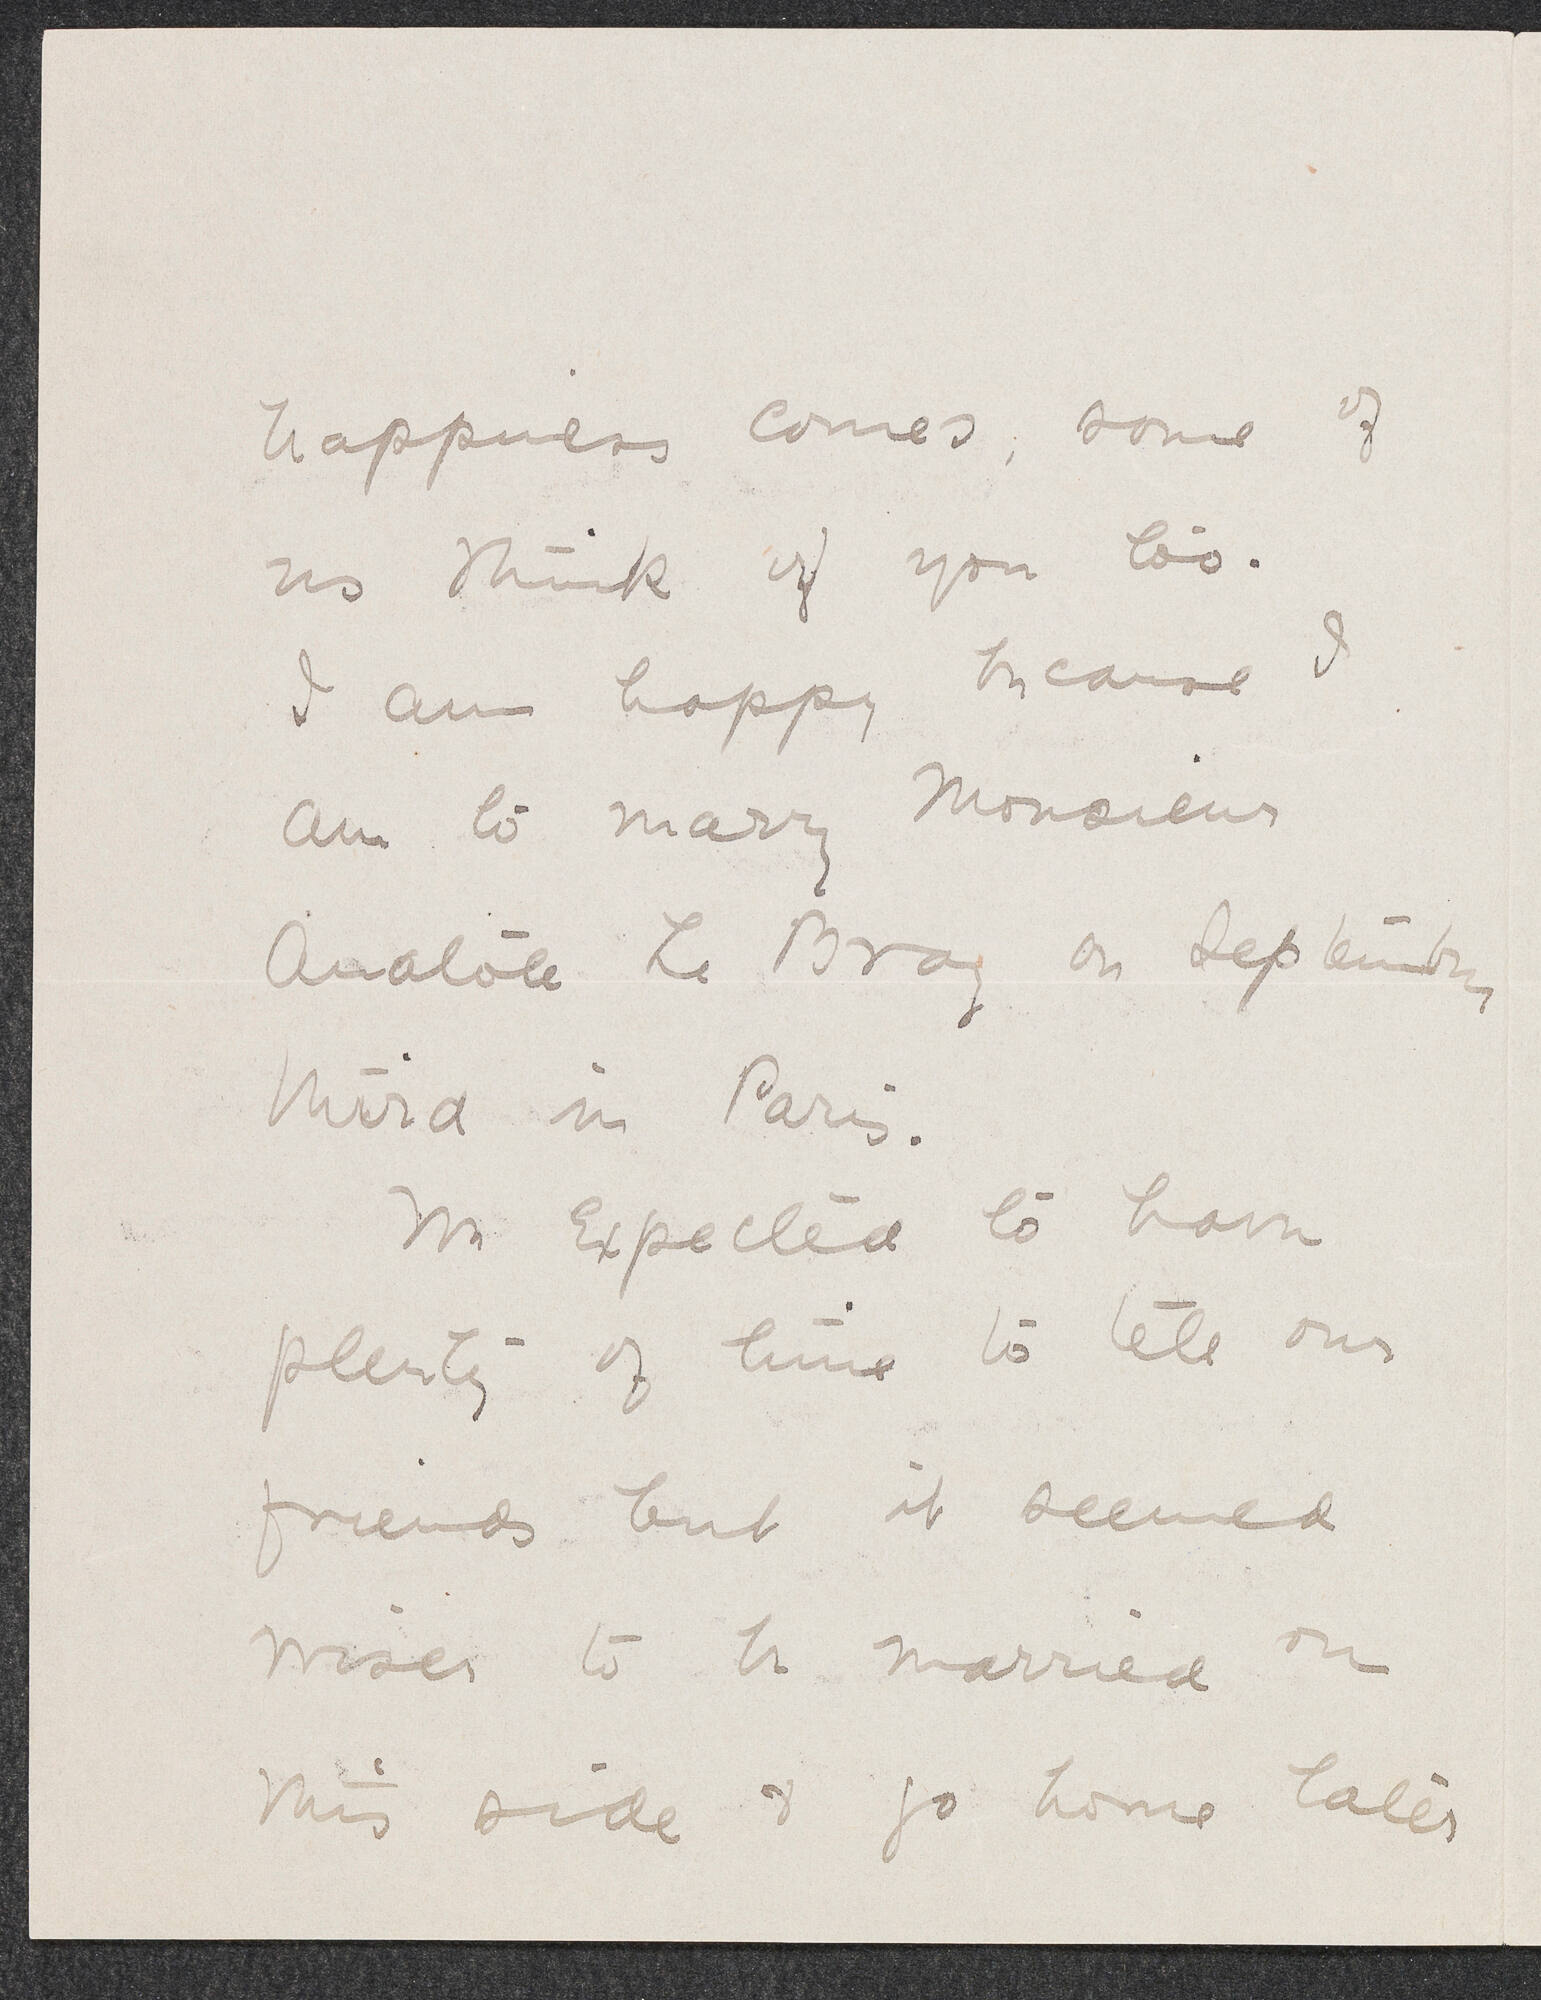 happiness comes, some of
us think of you too.
I am happy because I
am to marry Monsieur
Anatole Le Braz on September
third in Paris.
We expected to have
plenty of time to tell our
friends but it seemed
wiser to be married on
this side & go home later